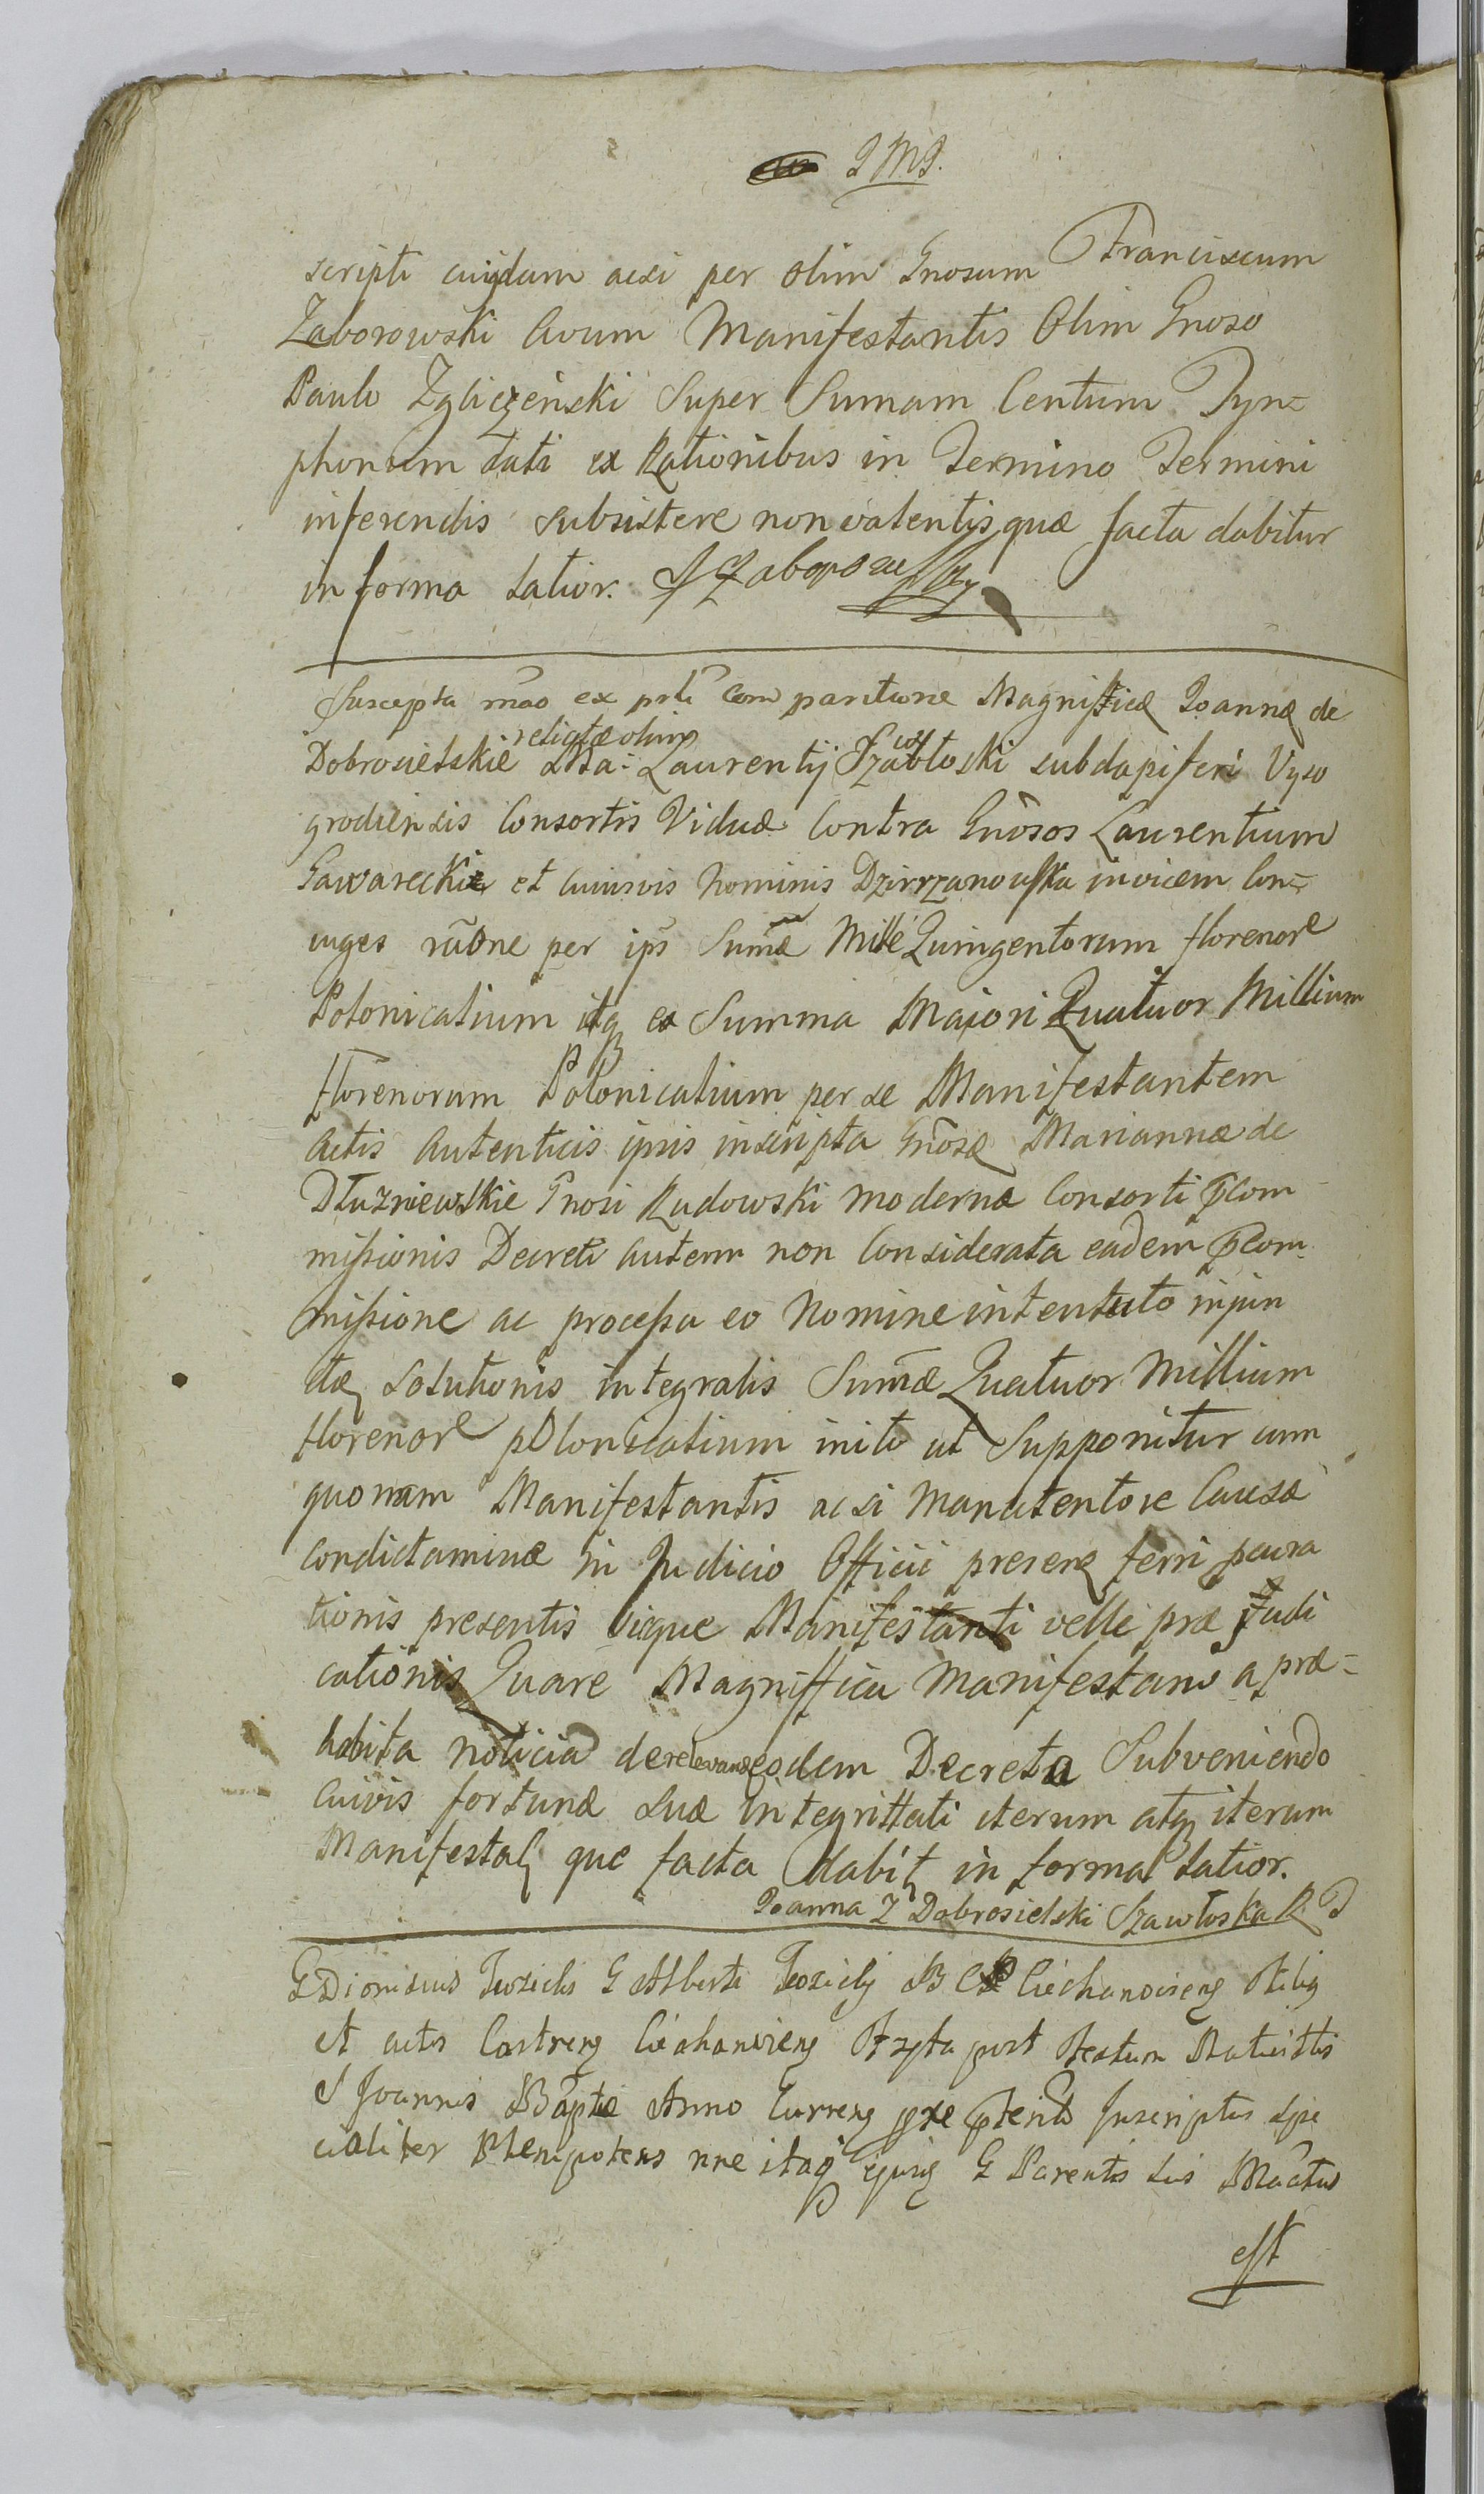 IMI.
scripti cuidam acsi per olim Gnosum Franciscum
Zaborowski Avum Manifestantis Olim Gnoso
Paulo Zgliczeński Super Sumam Centum Tyn=
phonum dati ex Rationibus in Termino Termini
inferendis subsistere non valentis, quæ facta dabitur
in forma latior.
Suscepta mão ex prti comparitione Magnificæ Joannæ de
Dobrosielskie relictæ olim Laurentij Szawłoski subdapiferi Vyso
grodiensis Consortis Viduæ Contra Gnosos Laurentium
Gawarecki et cuiusvis Nominis Dzirrzanowska invicem Con=
iuges rãone per ips Sumæ Mille Quingentorum florenor
Polonicalium itaq ex Summa Maiori Quatuor Millium
florenorum Polonicalium per se Manifestantem
Actis Autenticis ipsis inscripta Gnosæ Mariannæ de
Dłuzniewskie Gnosi Rudowski moderna Consorti pcom
missionis Decreti autem non Considerata eadem pcom
missione ac processu eo Nomine intentuto injun
ctæ Solutionis integralis Sumæ Quatuor Millium
florenor polonicalium inito ut Supponitur cum
quonam Manifestantis acsi Manutentore Causæ
Condictaminæ in Judicio Officii presenq ferri pcura
tionis presentis Vicque Manifestanti velle præ Judi
cationis Quare Magnifica Manifestans a præ=
habita noticia de relevan eodem Decreto Subveniendo
Cuivis fortunæ Suæ integrittati iterum atq iterum
Manifestat que facta dabit in forma latior.
Joanna Z Dobrosielski Szawłoska
G Dionisius G Alberti Ciechanoviens
et actis Castrens Ciechanoviens post Festum
S Joannis Baptæ Anno Currens Inscriptus spe
cialiter Plenipotens nne itaq G Parentis sui
est